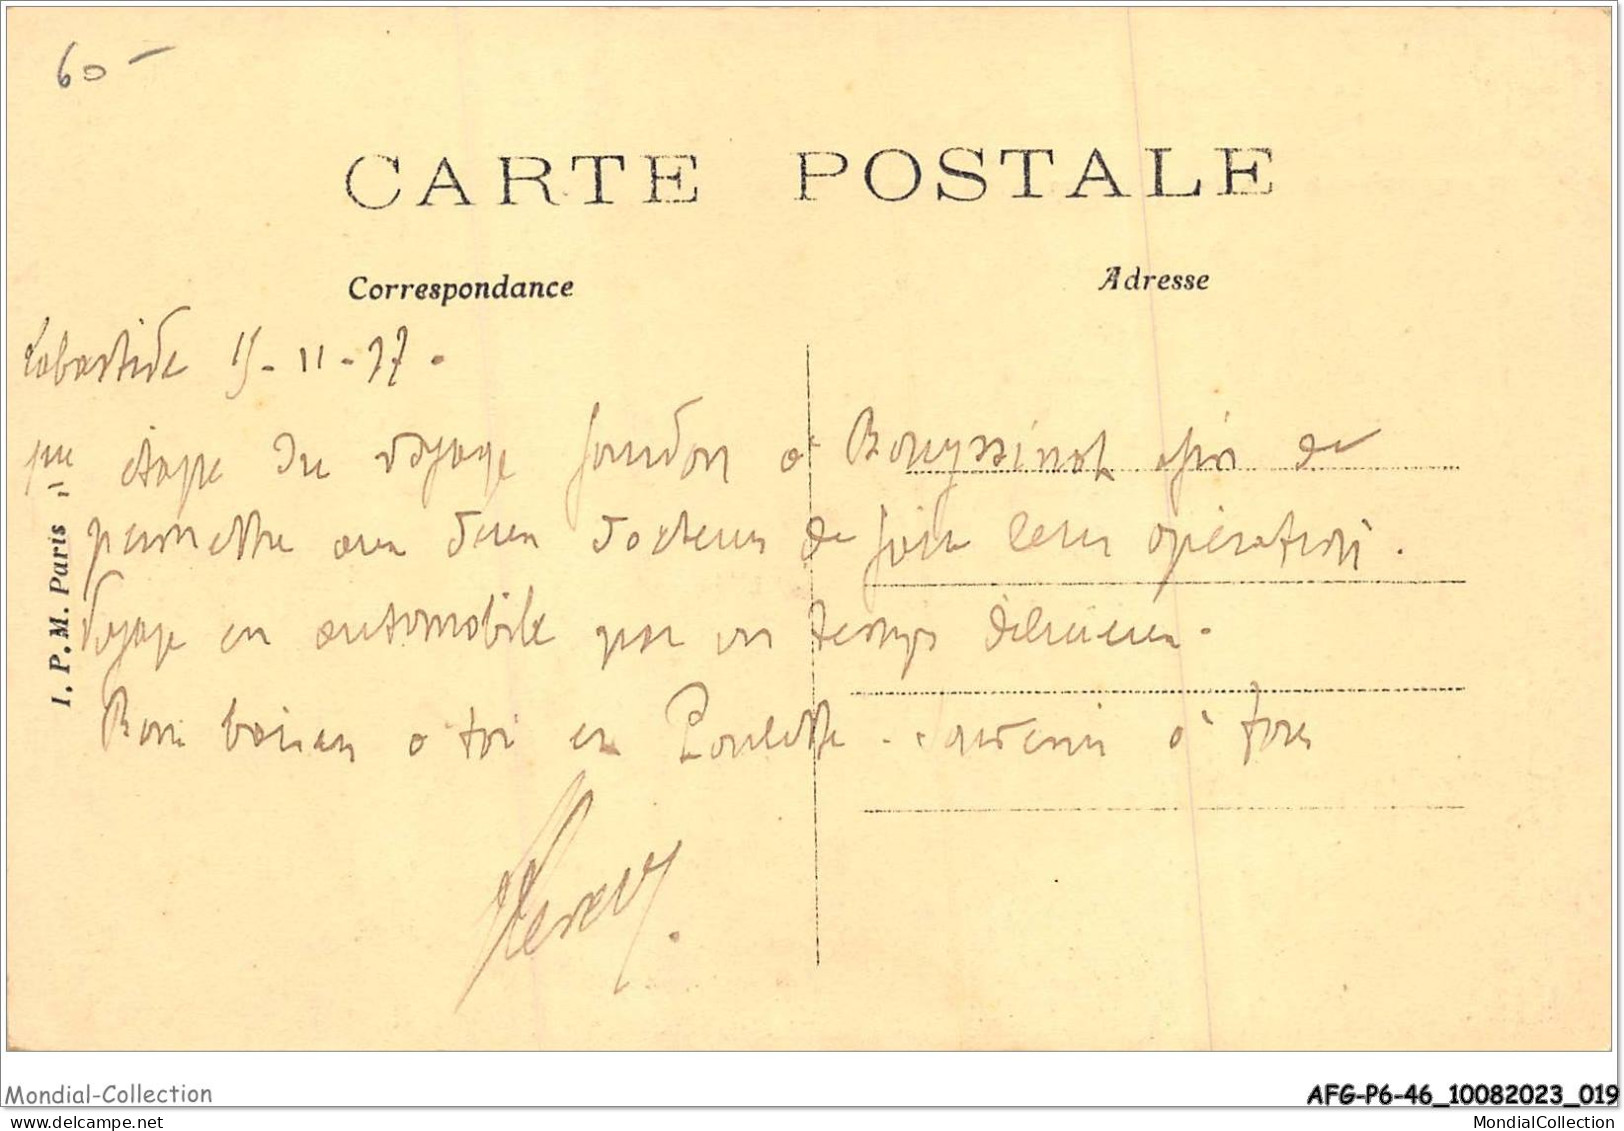 60 -
CARTE POSTALE
Correspondance
Adresse
Labastide 15-11-27.
étape du voyage Gourdon à Bouyssinot afin de
permettre aux deux docteurs de faire leur opération.
Voyage en automobile par un temps délicieux.
Bon baiser à toi et Poulette. Souvenir à tous
I. P. M. Paris
Mondial-Collection
AFG-P6-46_10082023_019
www.delcampe.net
MondialCollection